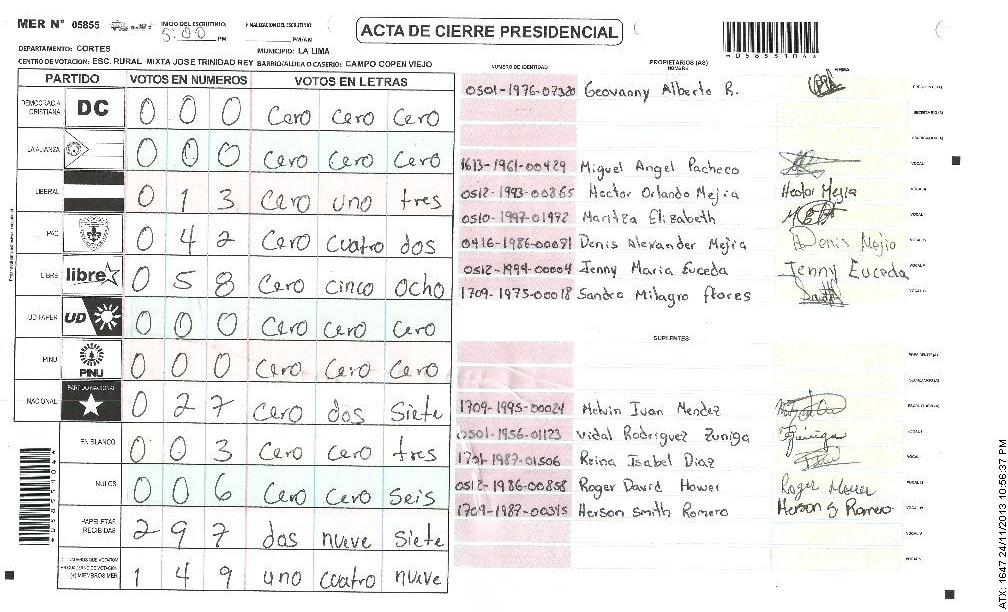 MER N° 05855 INICIO DEL ESCRUTINIO: 5:00 PM FINALIZACION DEL ESCRUTINIO: PM/AM
ACTA DE CIERRE PRESIDENCIAL
*05855104*
DEPARTAMENTO: CORTES MUNICIPIO: LA LIMA
CENTRO DE VOTACION: ESC. RURAL MIXTA JOSE TRINIDAD REY BARRIO/ALDEA O CASERIO: CAMPO COPEN VIEJO
PARTIDO VOTOS EN NUMEROS VOTOS EN LETRAS
DEMOCRACIA CRISTIANA DC 0 0 0 Cero Cero Cero
LA ALIANZA 0 0 0 Cero Cero Cero
LIBERAL 0 1 3 Cero uno tres
PAC 0 4 2 Cero Cuatro dos
LIBRE libre 0 5 8 Cero cinco Ocho
UD FAPER UD 0 0 0 Cero Cero Cero
PINU PINU 0 0 0 Cero Cero Cero
NACIONAL PARTIDO NACIONAL 0 2 7 Cero dos Siete
EN BLANCO 0 0 3 Cero Cero tres
NULOS 0 0 6 Cero Cero Seis
PAPELETAS RECIBIDAS 2 9 7 dos nueve Siete
CIUDADANOS QUE VOTARON EN CUADERNO DE VOTACION (+) MIEMBROS MER 1 4 9 uno Cuatro nueve
*05855104*
NUMERO DE IDENTIDAD PROPIETARIOS (AS) NOMBRE FIRMA
0501-1976-07320 Geovanny Alberto R. PRESIDENTE (A)
SECRETARIO (A)
ESCRUTADOR (A)
1613-1961-00429 Miguel Angel Pacheco VOCAL I
0512-1993-00865 Hector Orlando Mejia Hector Mejia VOCAL II
0510-1997-01972 Maritza Elizabeth
0416-1986-00081 Denis Alexander Mejia Denis Mejia
0512-1994-00004 Jenny Maria Euceda Jenny Euceda
1709-1975-00018 Sandra Milagro flores
SUPLENTES
PRESIDENTE (A)
SECRETARIO (A)
1709-1995-00024 Melvin Ivan Mendez ESCRUTADOR (A)
0501-1956-01123 Vidal Rodriguez Zuniga
1701-1987-01506 Reina Isabel Diaz
0512-1986-00858 Roger David Hower
1709-1987-00345 Herson Smith Romero Herson S Romero
ATX: 1647 24/11/2013 10:56:37 PM